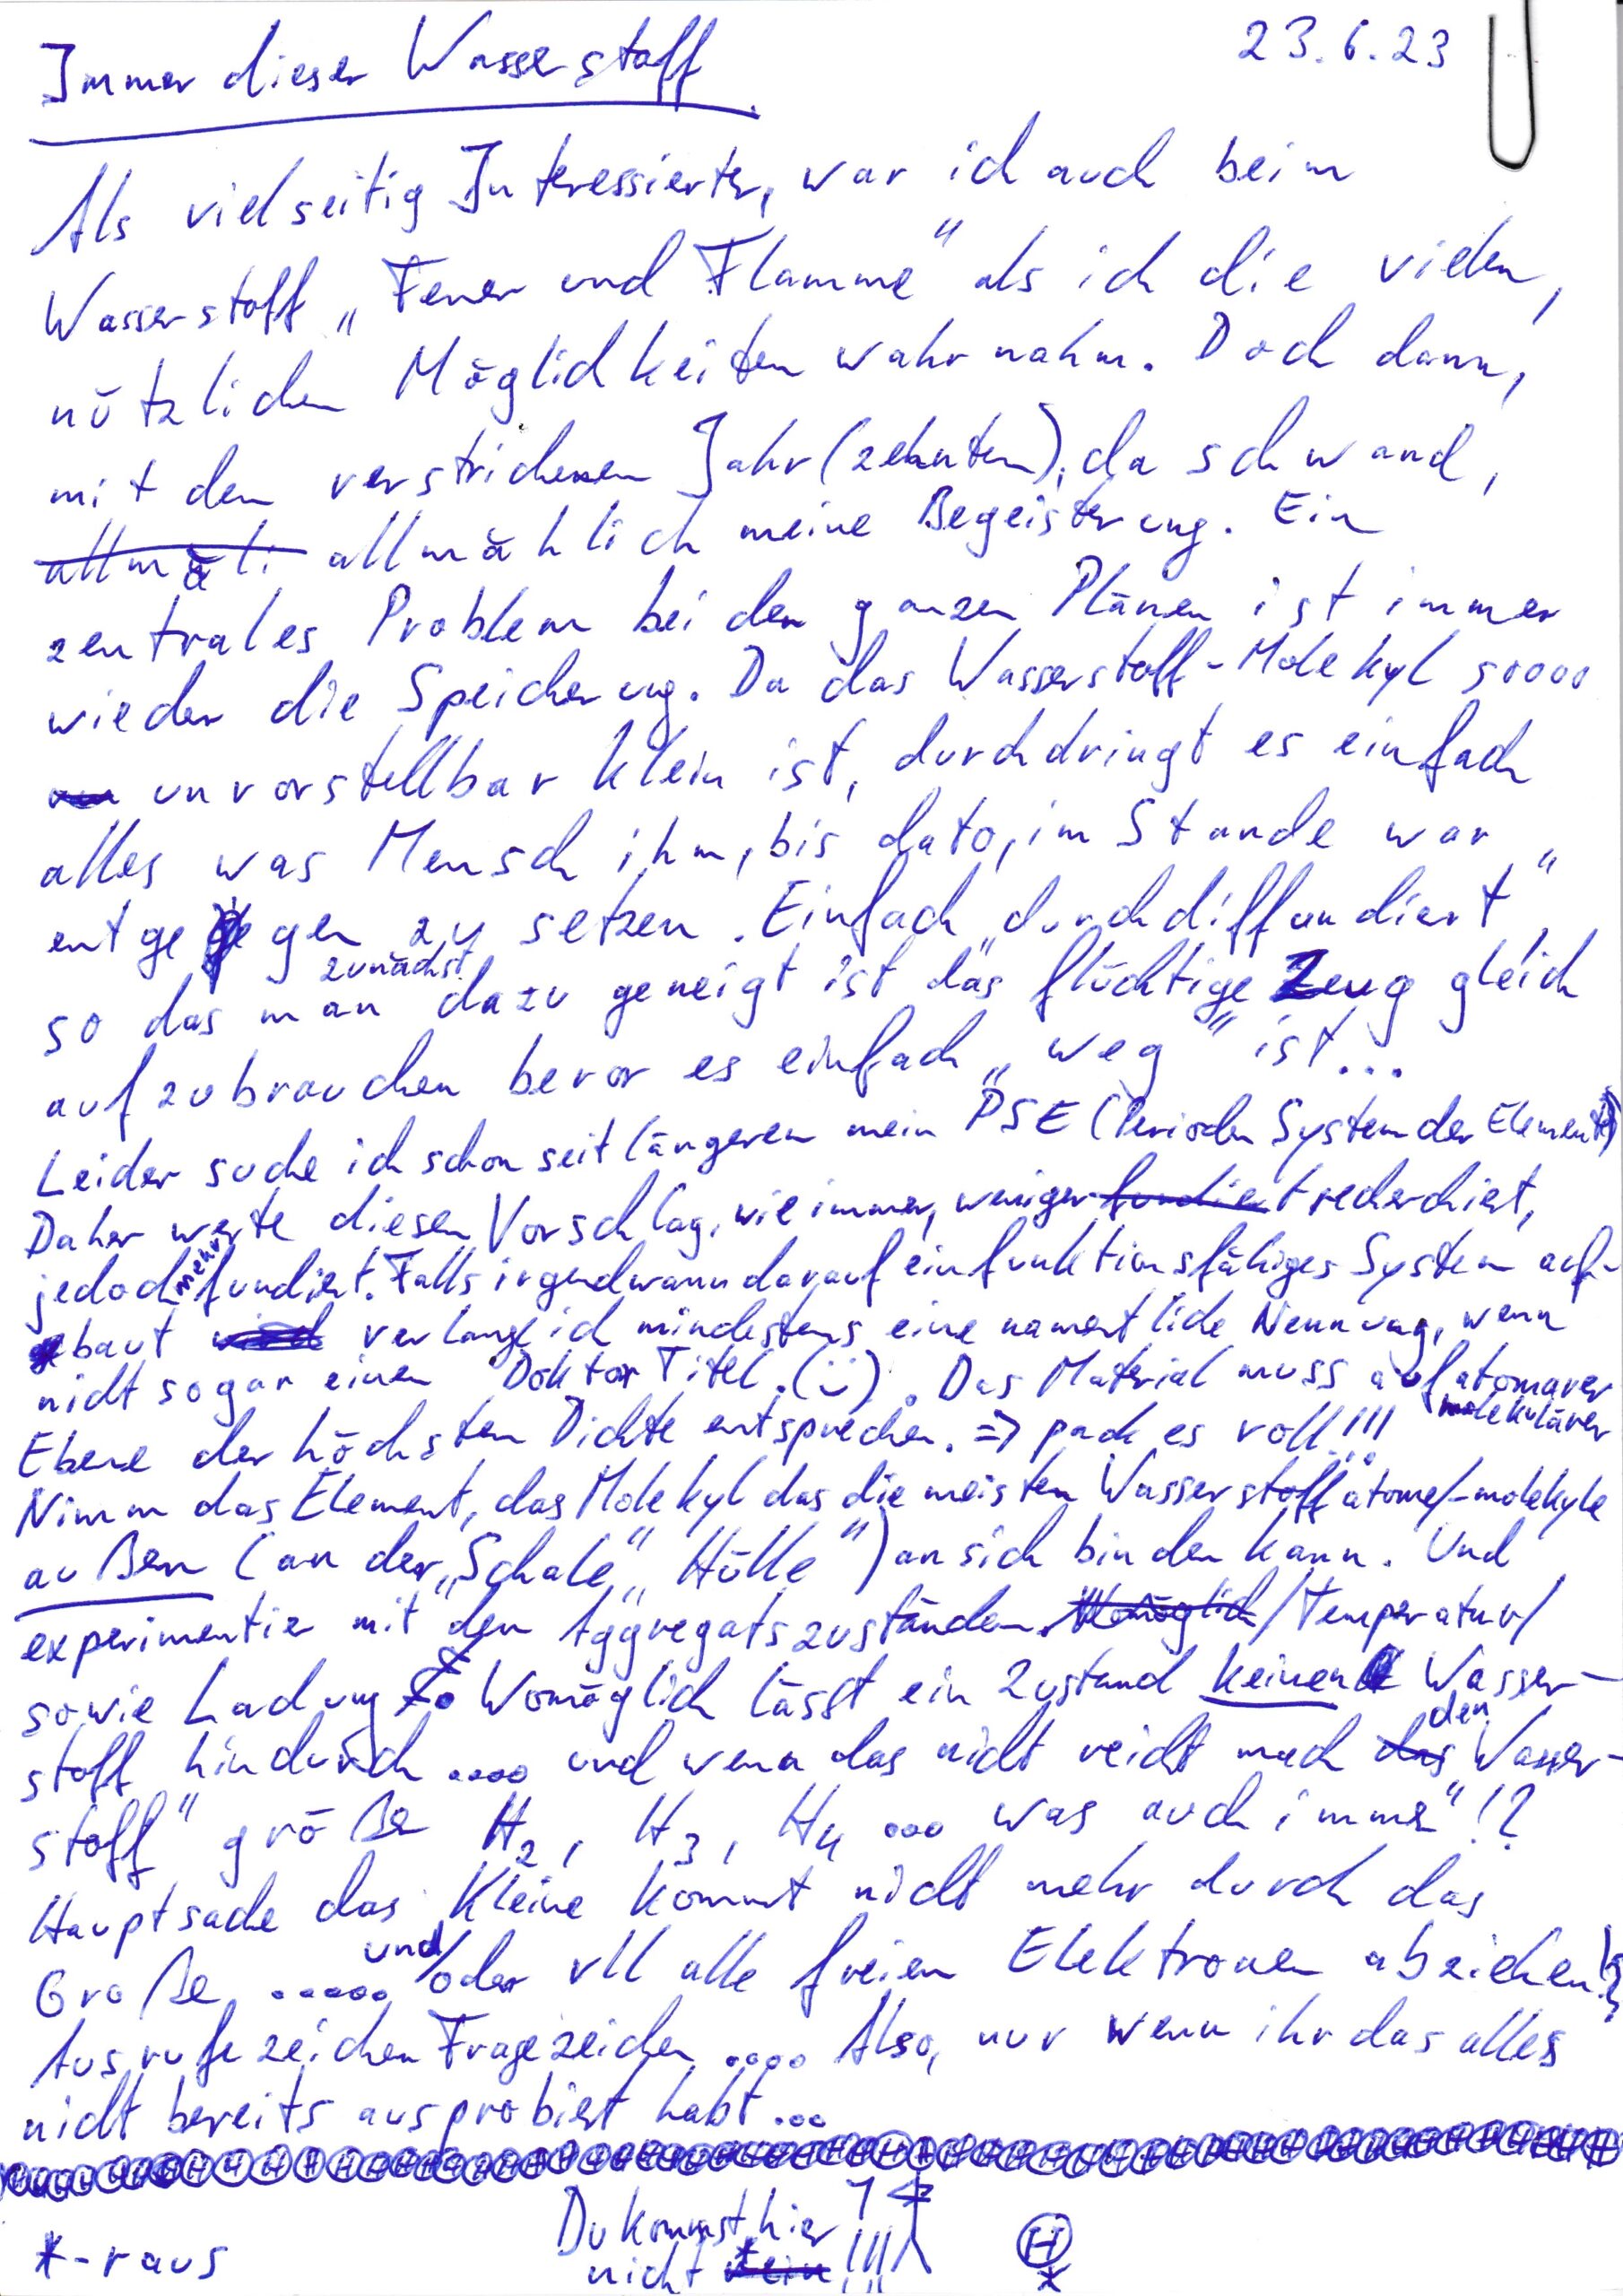 Immer dieser Wasserstoff
23.6.23
Als vielseitig Interessierter, war ich auch beim
Wasserstoff „Feuer und Flamme“ als ich die vielen,
nützlichen Möglichkeiten wahrnahm. Doch dann,
mit den verstrichenen Jahr(zehnten), da schwand,
allmäli allmählich meine Begeisterung. Ein
zentrales Problem bei den ganzen Plänen ist immer
wieder die Speicherung. Da das Wasserstoff-Molekyl soooo
unvorstellbar klein ist, durchdringt es einfach
alles was Mensch ihm, bis dato, im Stande war
entgegen zu setzen. Einfach „durchdiffundiert“,
so das man zunächst dazu geneigt ist das flüchtige Zeug gleich
aufzubrauchen bevor es einfach „weg“ ist...
Leider suche ich schon seit längeren mein PSE (Perioden System der Elemente)
Daher werte diesen Vorschlag, wie immer, weniger fundiert recherchiert,
jedoch mehr fundiert. Falls irgendwann darauf ein funktionsfähiges System auf-
gebaut wird verlange ich mindestens eine namentliche Nennung, wenn
nicht sogar einen Doktor Titel.(ü). Das Material muss auf atomarer
molekularer
Ebene der höchsten Dichte entsprechen. => pack es voll!!!
Nimm das Element, das Molekyl das die meisten Wasserstoffatome/-molekyle
außen (an der „Schale“, „Hülle“) an sich binden kann. Und
experimentier mit den Aggregatszuständen Womöglich /Temperatur/
sowie Ladung Womöglich lässt ein Zustand keinen Wasser-
stoff hindurch .... und wenn das nicht reicht mach das den Wasser-
stoff “größer H2, H3, H4 ... was auch immer“!?
Hauptsache das Kleine kommt nicht mehr durch das
Große ..... und/oder vll alle freien Elektronen abziehen!?
Ausrufezeichen Fragezeichen .... Also, nur wenn ihr das alles
nicht bereits ausprobiert habt ...
Du kommst hier
nicht *rein !!!
*-raus
H
*